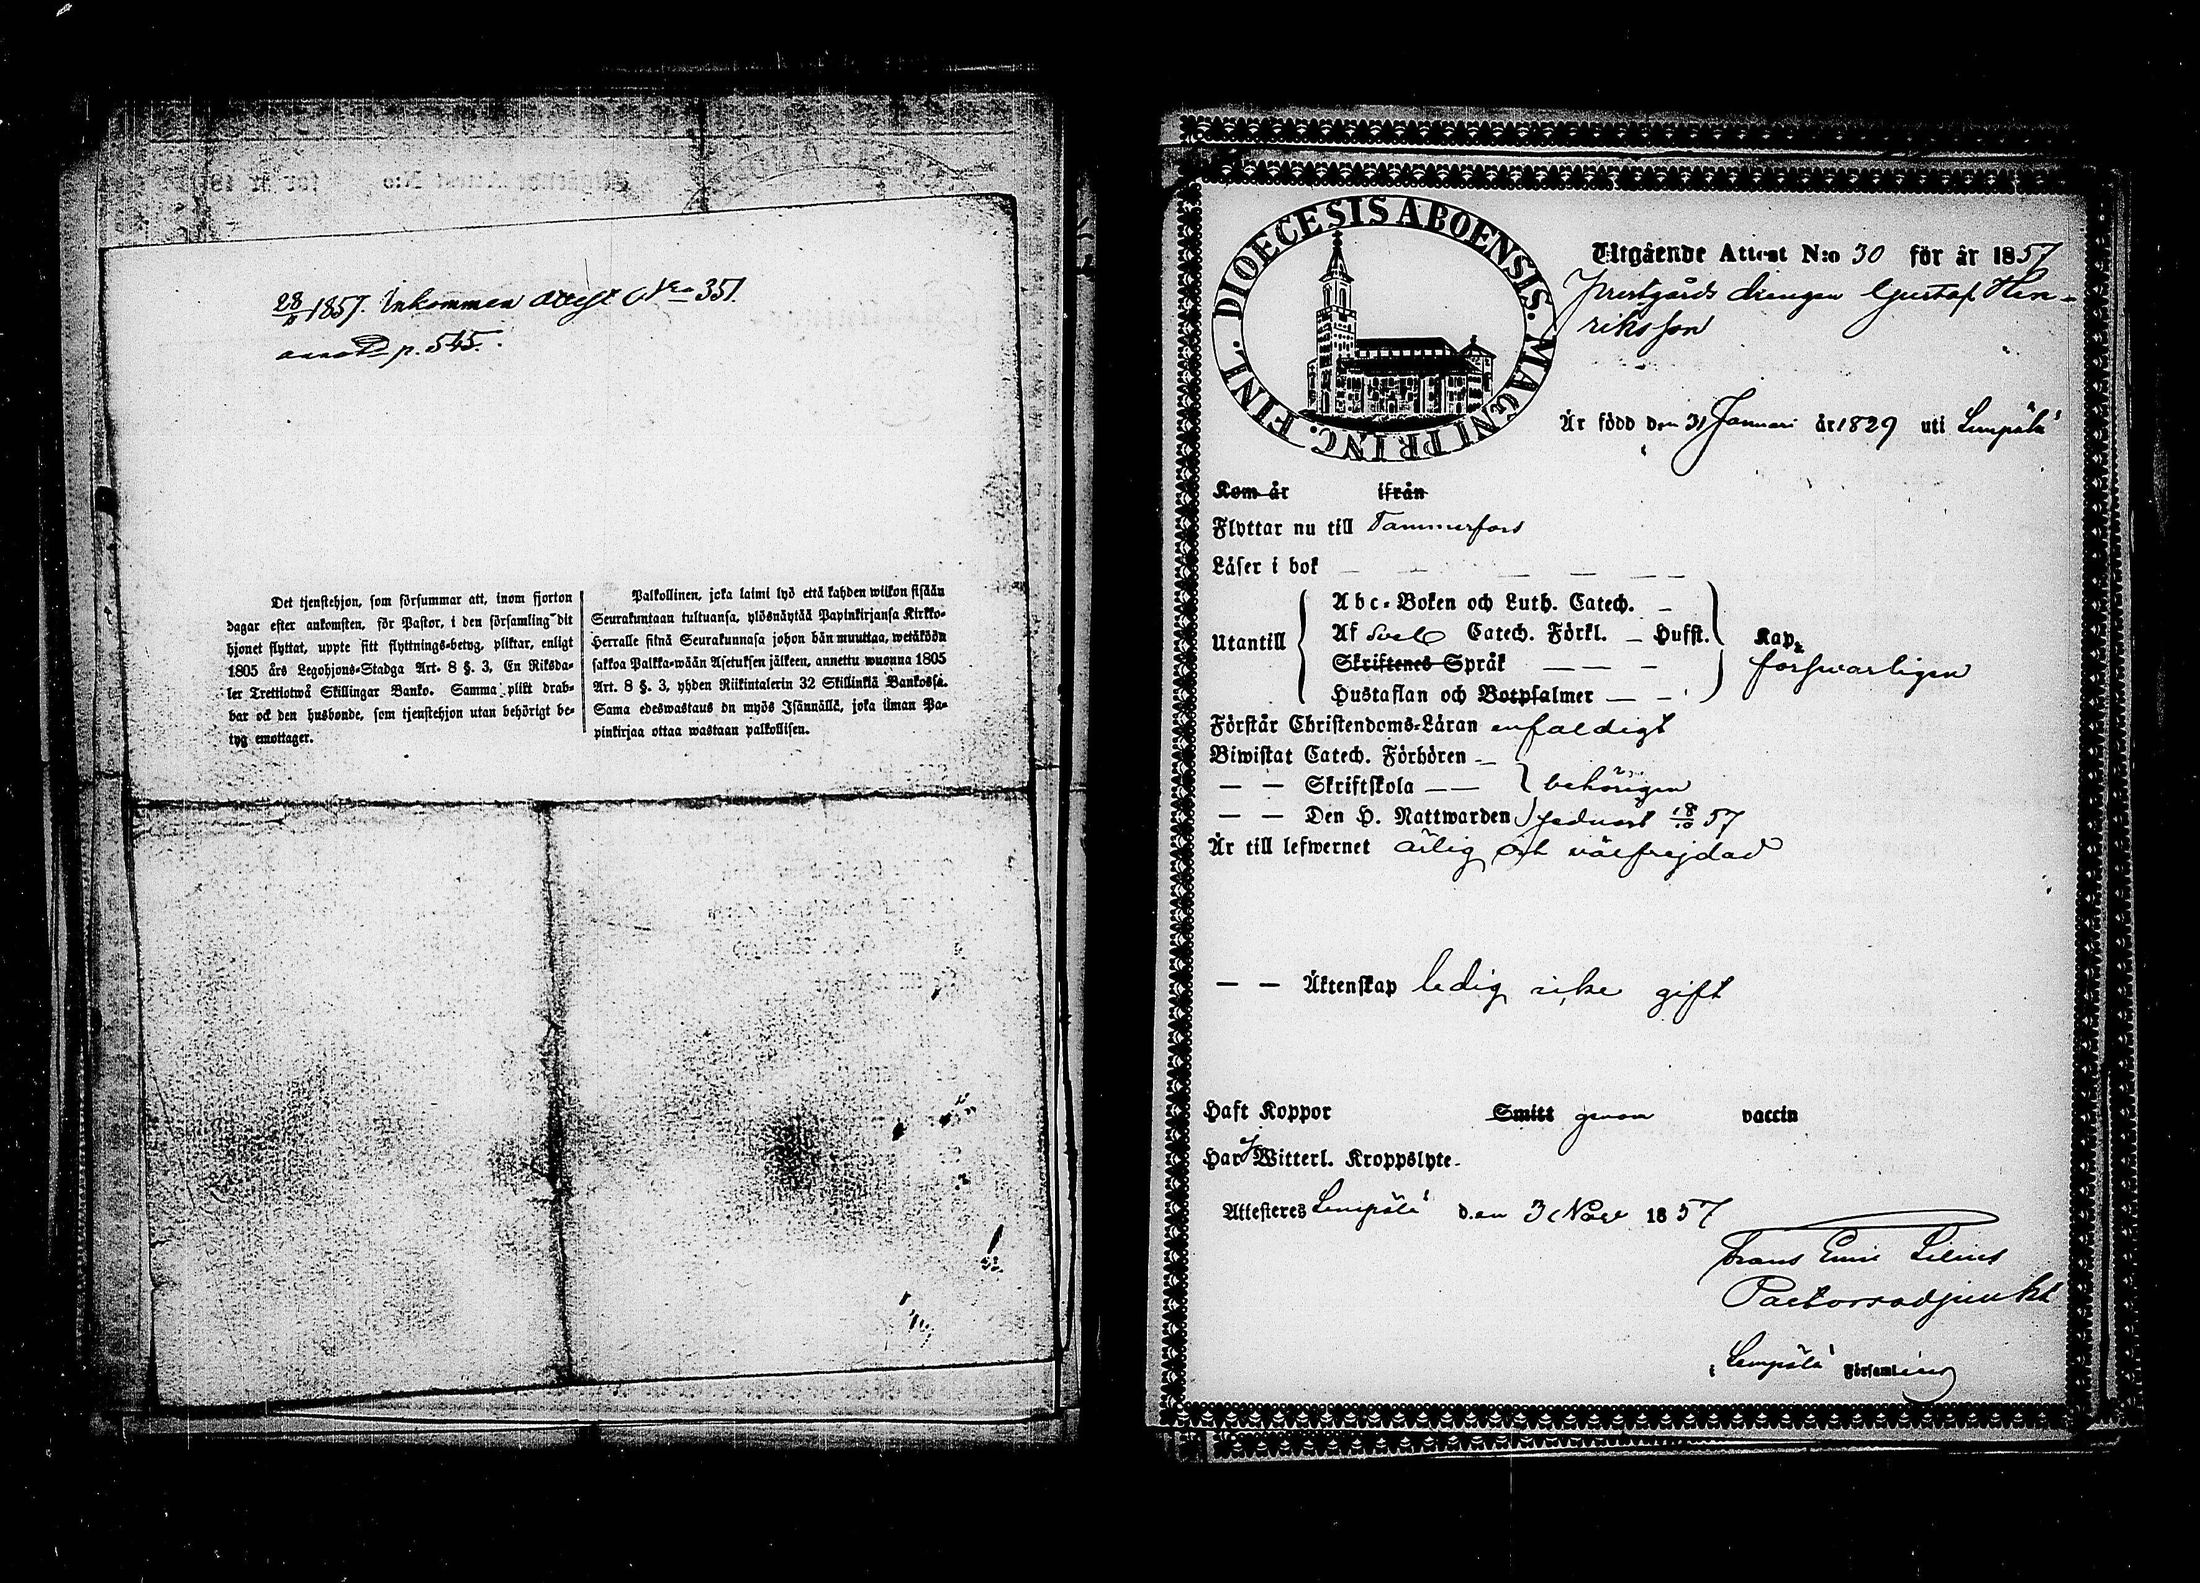 28/11 1857. Inkommen attest Nro 351.
annot p. 545.
Det tjenstehjon, som försummar att, inom fjorton
dagar efter ankomsten, för Pastor, i den församling dit
hjonet flyttat, uppte sitt flyttnings-betyg, pliktar, enligt
1805 års Legohjons-Stadga Art. 8 §. 3, En Riksda-
ler Trettiotwå Skillingar Banko. Samma plikt drab-
bar ock den husbonde, som tjenstehjon utan behörigt be-
tyg emottager.
Palkollinen, joka laimi lyö että kahden wiikon sisään
Seurakuntaan tultuansa, ylösnäytää Papinkirjansa Kirkko-
Herralle siinä Seurakunnasa johon hän muuttaa, wetäköön
sakkoa Palkka-wään Asetuksen jälkeen, annettu wuonna 1805
Art. 8 §. 3, yhden Riikintalerin 32 Skillinkiä Bankossa.
Sama edeswastaus on myös Isännällä, joka ilman Pa-
pinkirjaa ottaa wastaan palkollisen.
DIOECESIS ABOENSIS. MAGNI PRINC. FINL.
Utgående Attest N:o 30 för år 1857
Prestgårds drengen Gustaf Hen-
riksson
Är född den 31 Januari år 1829 uti Lempälä
Kom år ifrån
Flyttar nu till Tammerfors
Läser i bok
Abc-Boken och Luth. Catech.
Utantill Af Sveb Catech. Förkl. Hufst.
Skriftenes Språk
Hustaflan och Botpsalmer
Kap.
forswarligen
Förstår Christendoms-Läran enfaldigt
Biwistat Catech. Förhören
— — Skriftskola — — behörigen
— — Den H. Nattwarden sednast 18/10 57
Är till lefwernet ärlig och välfrejdad
— — Äktenskap ledig icke gift
Haft Koppor Smitt genom vaccin
Har Witterl. Kroppslyte
Attesteres Lempälä den 3 Nov 1857
Frans Emil Lilius
Pastorsadjunkt
i Lempälä Församling